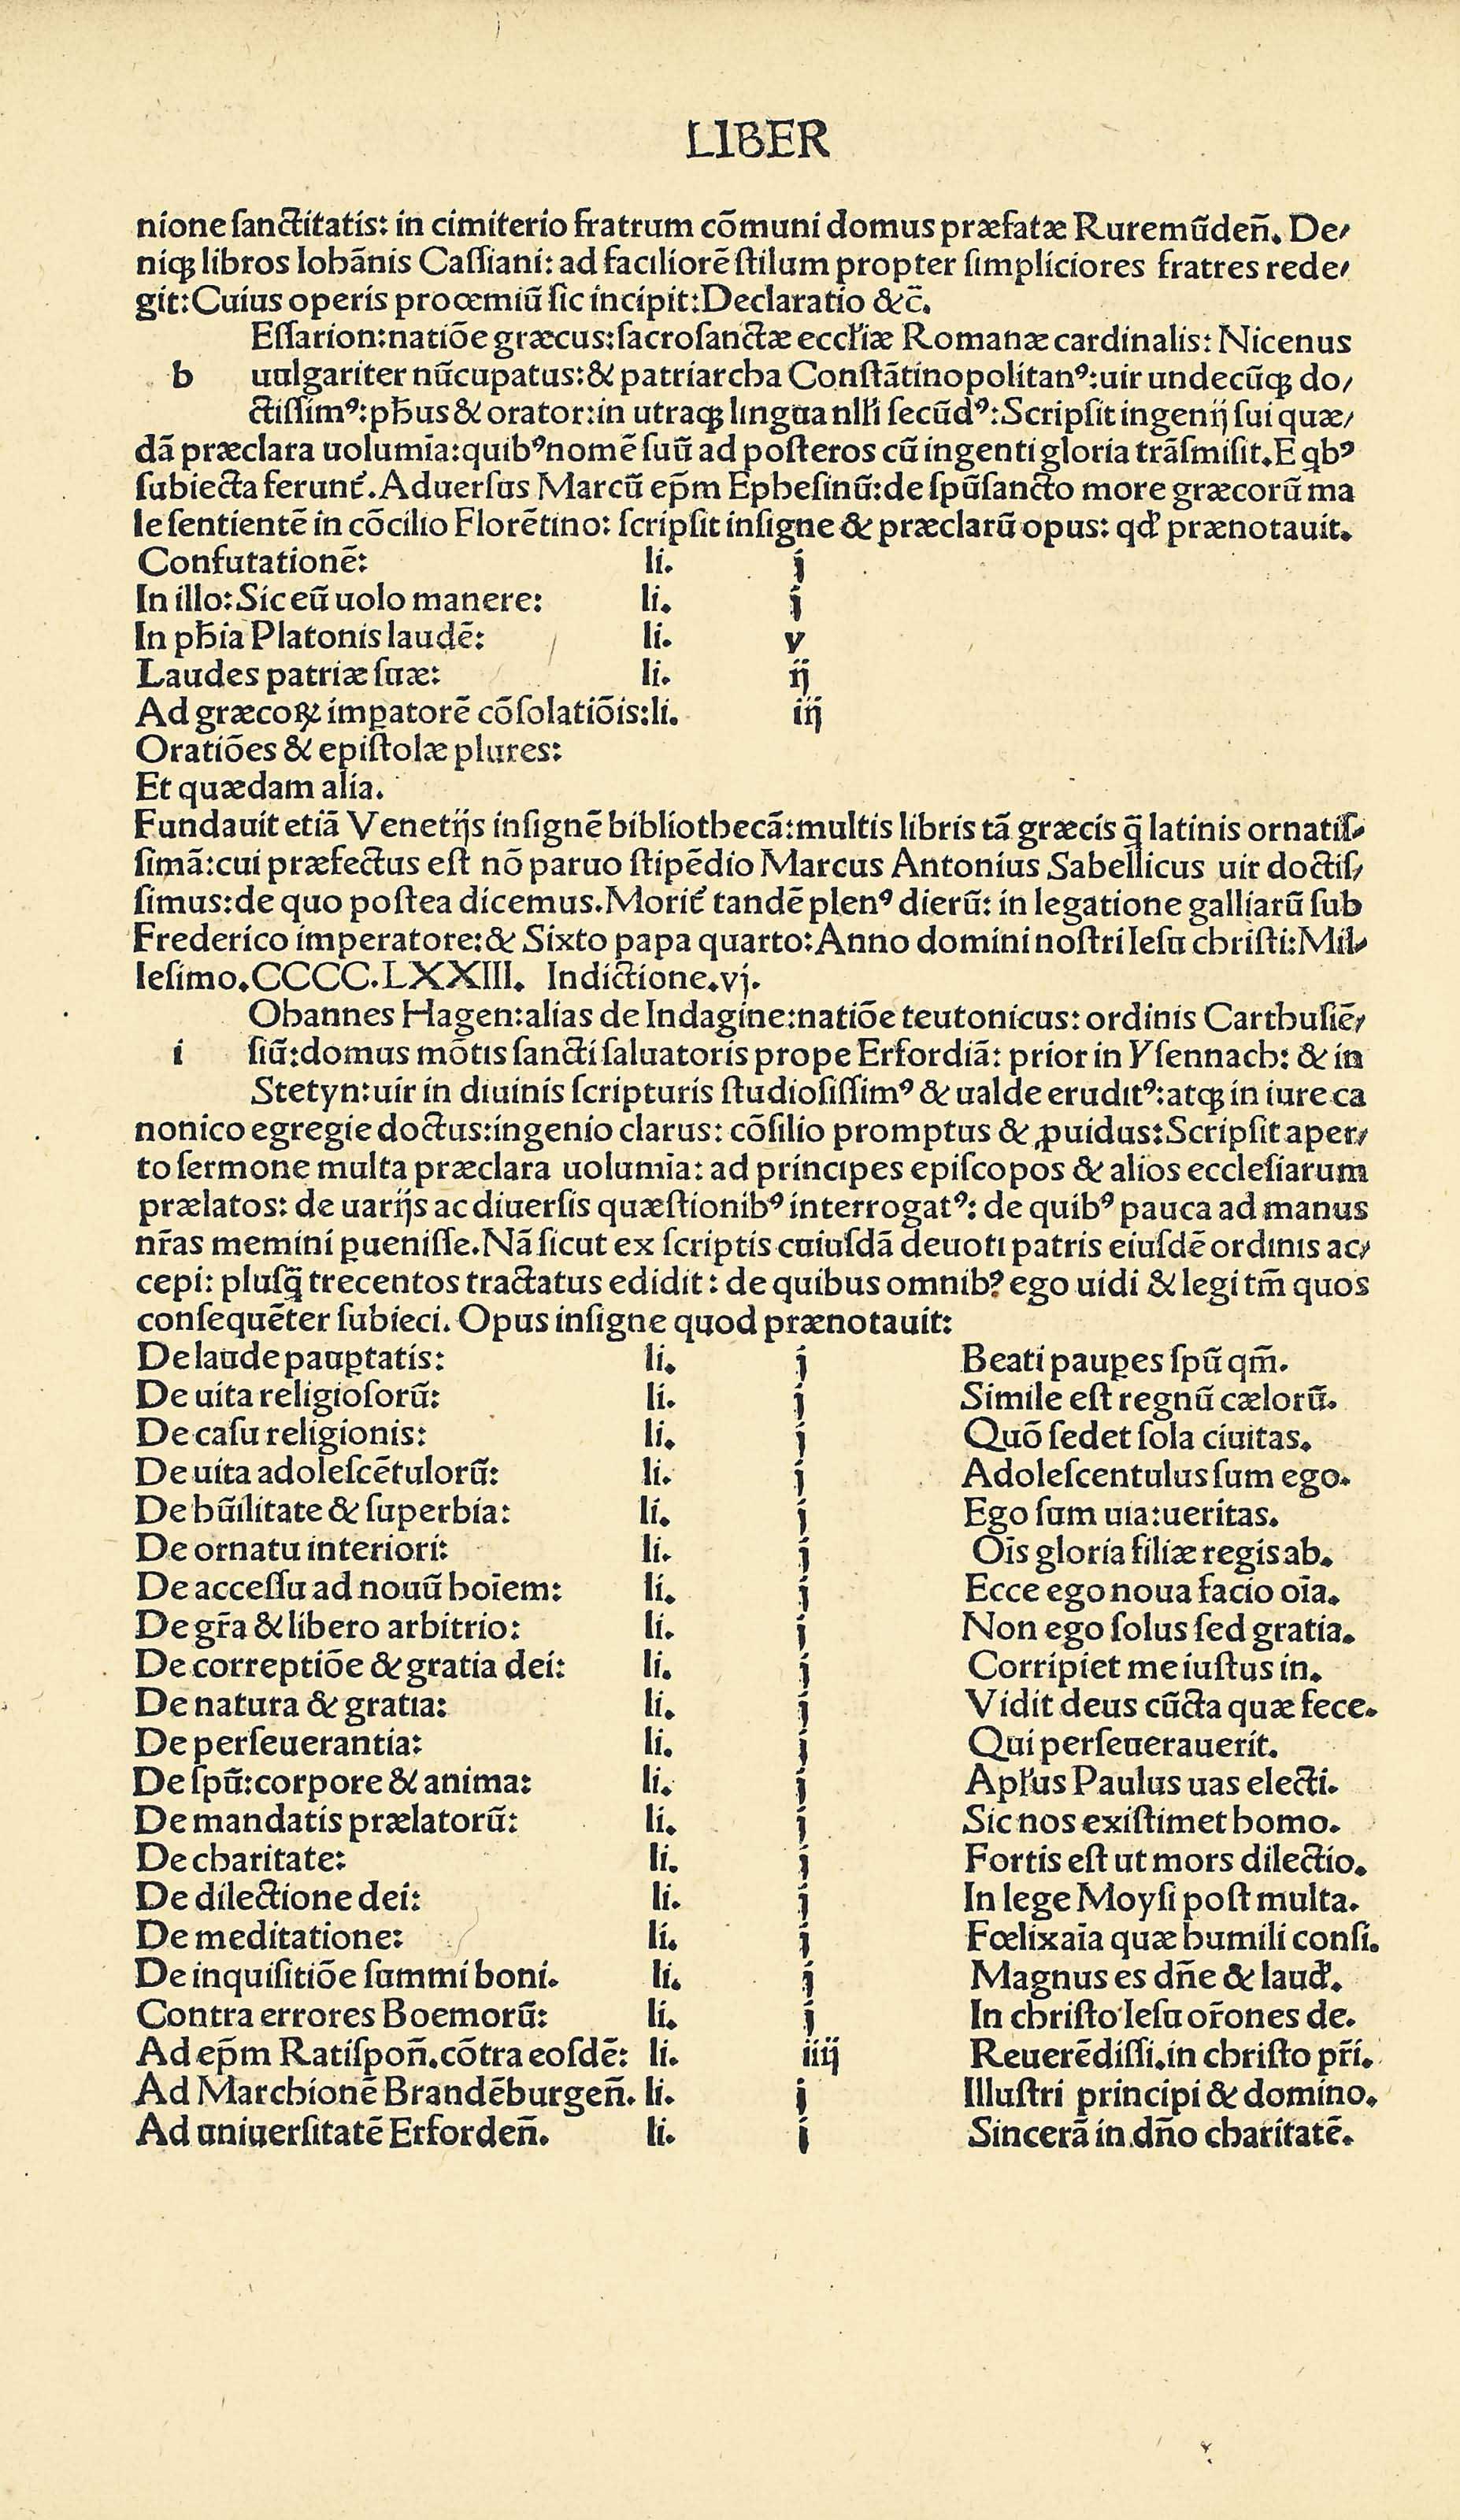 LIBER
nione ſanctitatis: in cimiterio fratrum cõmuni domus præfatæ Ruremũdeñ. De⸗
niqꝫ libros Iohãnis Caſſiani: ad faciliorẽ ſtilum propter ſimpliciores fratres rede⸗
git: Cuius operis procemiũ ſic incipit: Declaratio &c̃.
Eſſarion: natiõe græcus: ſacroſanctæ eccľiæ Romanæ cardinalis: Nicenus
b uulgariter nũcupatus: & patriarcha Conſtãtinopolitanꝰ: uir undecũqꝫ do⸗
ctiſſimꝰ: pħus & orator: in utraqꝫ lingua nlľi ſecũdꝰ: Scripſit ingenij ſui quæ⸗
dã præclara uolumīa: quibꝰ nomẽ ſuũ ad poſteros cũ ingenti gloria trãſmiſit. E qbꝰ
ſubiecta ferunť. Aduerſus Marcũ ep̃m Epheſinũ: de ſpũſancto more græcorũ ma
le ſentientẽ in cõcilio Florẽtino: ſcripſit inſigne & præclarũ opus: qď prænotauit.
Confutationẽ: li. j
In illo: Sic eũ uolo manere: li. j
In pħia Platonis laudẽ: li. v
Laudes patriæ ſuæ: li. ij
Ad græcoꝝ imꝑatorẽ cõſolatiõis: li. iij
Oratiões & epiſtolæ plures:
Et quædam alia.
Fundauit etiã Venetijs inſignẽ bibliothecã: multis libris tã græcis q̃ latinis ornatiſ⸗
ſimã: cui præfectus eſt nõ paruo ſtipẽdio Marcus Antonius Sabellicus uir doctiſ⸗
ſimus: de quo poſtea dicemus. Moriť tandẽ plenꝰ dierũ: in legatione galliarũ ſub
Frederico imperatore: & Sixto papa quarto: Anno domini noſtri Ieſu chriſti: Mil⸗
leſimo. CCCC. LXXIII. Indictione. vj.
Ohannes Hagen: alias de Indagine: natiõe teutonicus: ordinis Carthuſiẽ⸗
i ſiũ: domus mõtis ſancti ſaluatoris prope Erfordiã: prior in Yſennach: & in
Stetyn: uir in diuinis ſcripturis ſtudioſiſſimꝰ & ualde eruditꝰ: atqꝫ in iure ca
nonico egregie doctus: ingenio clarus: cõſilio promptus & ꝓuidus: Scripſit aper⸗
to ſermone multa præclara uolumīa: ad principes epiſcopos & alios eccleſiarum
prælatos: de uarijs ac diuerſis quæſtionibꝰ interrogatꝰ: de quibꝰ pauca ad manus
nr̃as memini ꝑueniſſe. Nã ſicut ex ſcriptis cuiuſdã deuoti patris eiuſdẽ ordinis ac⸗
cepi: pluſq̃ trecentos tractatus edidit: de quibus omnibꝰ ego uidi & legi tm̃ quos
conſequẽter ſubieci. Opus inſigne quod prænotauit:
De laude pauꝑtatis: li. j Beati pauꝑes ſpũ qm̃.
De uita religioſorũ: li. j Simile eſt regnũ cælorũ.
De caſu religionis: li. j Quõ ſedet ſola ciuitas.
De uita adoleſcẽtulorũ: li. j Adoleſcentulus ſum ego.
De hũilitate & ſuperbia: li. j Ego ſum uia: ueritas.
De ornatu interiori: li. j Oīs gloria filiæ regis ab.
De acceſſu ad nouũ hoīem: li. j Ecce ego noua facio oīa.
De gr̃a & libero arbitrio: li. j Non ego ſolus ſed gratia.
De correptiõe & gratia dei: li. j Corripiet me iuſtus in.
De natura & gratia: li. j Vidit deus cũcta quæ fece.
De perſeuerantia: li. j Qui perſeuerauerit.
De ſpũ: corpore & anima: li. j Apľus Paulus uas electi.
De mandatis prælatorũ: li. j Sic nos exiſtimet homo.
De charitate: li. j Fortis eſt ut mors dilectio.
De dilectione dei: li. j In lege Moyſi poſt multa.
De meditatione: li. j Fœlix aīa quæ humili conſi.
De inquiſitiõe ſummi boni. li. j Magnus es dñe & lauď.
Contra errores Boemorũ: li. j In chriſto Ieſu or̃ones de.
Ad ep̃m Ratiſpoñ. cõtra eoſdẽ: li. iiij Reuerẽdiſſi. in chriſto pr̃i.
Ad Marchionẽ Brandẽburgeñ. li. j Illuſtri principi & domino.
Ad uniuerſitatẽ Erfordeñ. li. j Sincerã in dño charitatẽ.